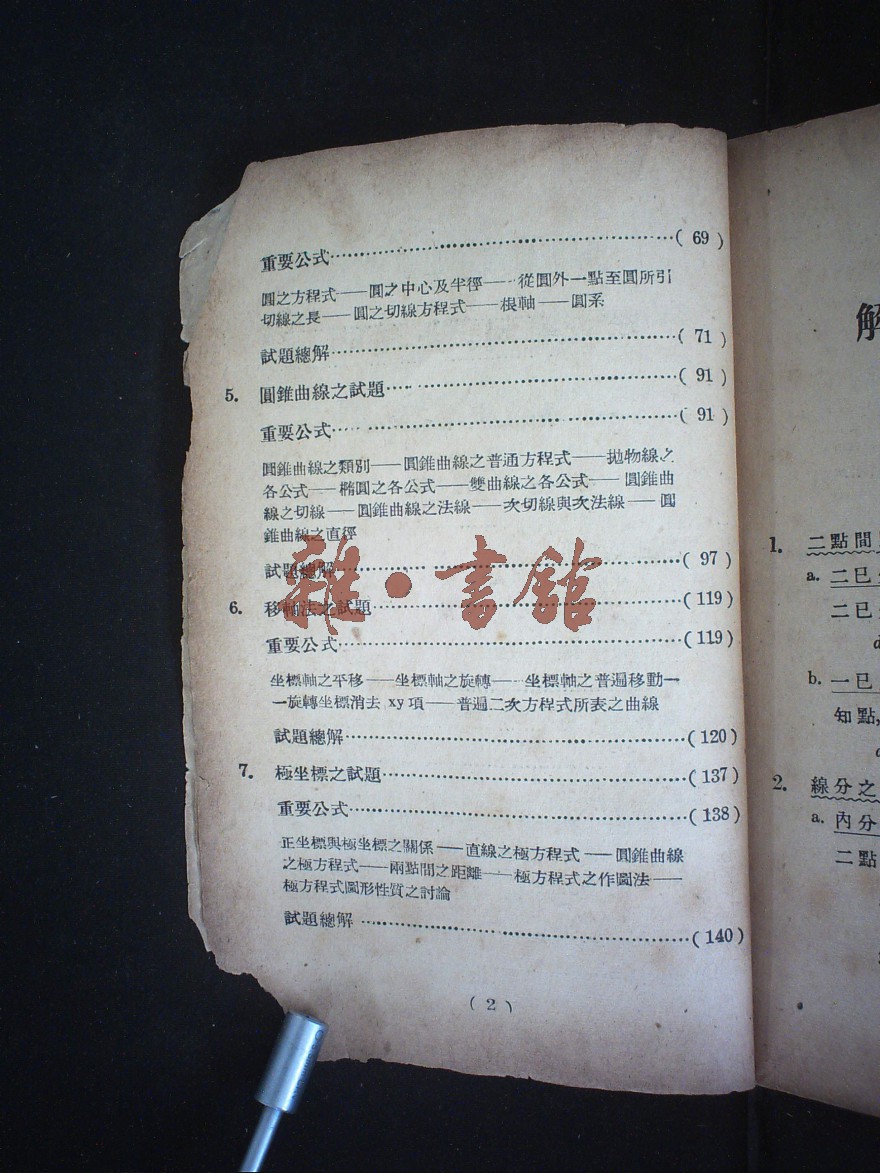 重要公式……………………………………( 69 )
圓之方程式——圓之中心及半徑——從圓外一點至圓所引
切線之長——圓之切線方程式——根軸——圓系
試題總解……………………………………( 71 )
5. 圓錐曲線之試題……………………………………( 91 )
重要公式……………………………………( 91 )
圓錐曲線之類別——圓錐曲線之普通方程式——拋物線之
各公式——橢圓之各公式——雙曲線之各公式——圓錐曲
線之切線——圓錐曲線之法線——次切線與次法線——圓
錐曲線之直徑
試題總解……………………………………( 97 )
6. 移軸法之試題……………………………………(119)
重要公式……………………………………(119)
坐標軸之平移——坐標軸之旋轉——坐標軸之普遍移動—
—旋轉坐標消去 xy 項——普遍二次方程式所表之曲線
試題總解……………………………………(120)
7. 極坐標之試題……………………………………(137)
重要公式……………………………………(138)
正坐標與極坐標之關係——直線之極方程式——圓錐曲線
之極方程式——兩點間之距離——極方程式之作圖法——
極方程式圖形性質之討論
試題總解……………………………………(140)
( 2 )
雜·書館
解
1. 二點間
a. 二已
二已
d
b. 一已
知點,
d
2. 線分之
a. 內分
二點